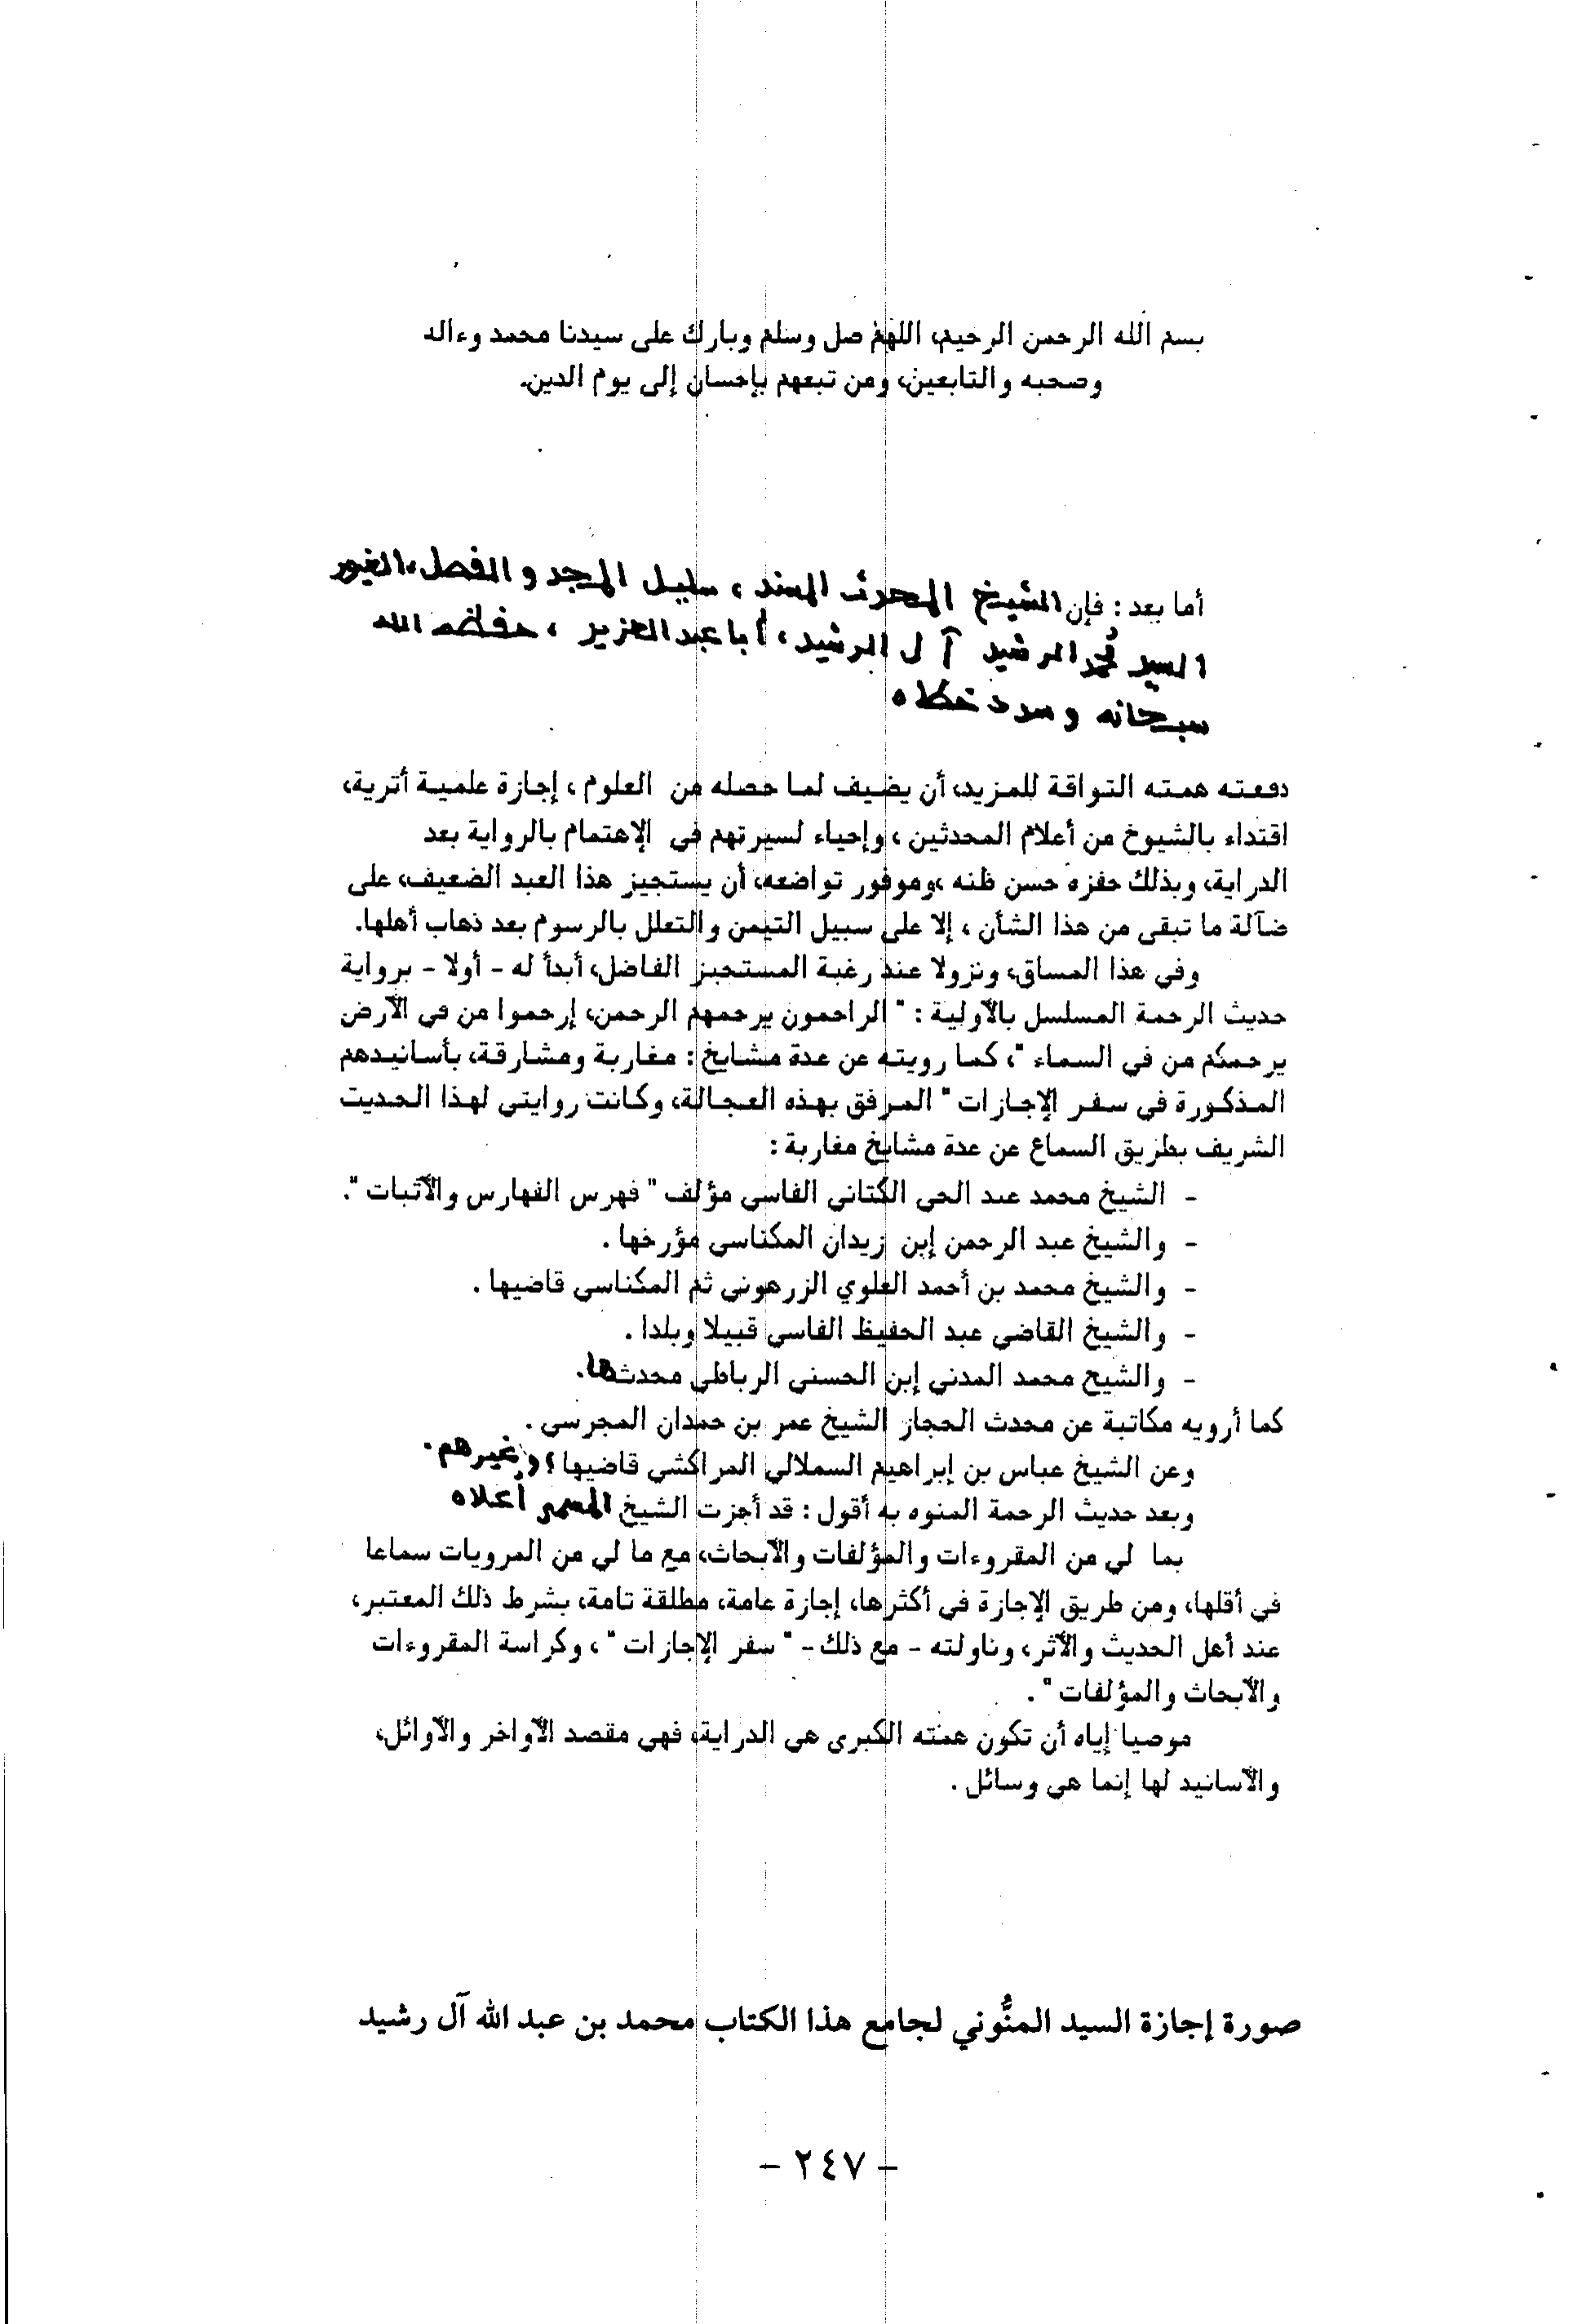 بسم الله الرحمن الرحيم، اللهم صل وسلم وبارك على سيدنا محمد وءاله
وصحبه والتابعين، ومن تبعهم بإحسان إلى يوم الدين.
أما بعد : فإن الشيخ المحدث المسند ، سليل المجد والفضل، الغيور
السيد محمد الرشيد آل الرشيد ، أبا عبد العزيز ، حفظه الله
سبحانه وسدد خطاه
دفعته همته التواقة للمزيد، أن يضيف لما حصله من العلوم ، إجازة علمية أثرية،
اقتداء بالشيوخ من أعلام المحدثين ، وإحياء لسيرتهم في الإهتمام بالرواية بعد
الدراية، وبذلك حفزه حسن ظنه ،وموفور تواضعه، أن يستجيز هذا العبد الضعيف، على
ضآلة ما تبقى من هذا الشأن ، إلا على سبيل التيمن والتعلل بالرسوم بعد ذهاب أهلها.
وفي هذا المساق، ونزولا عند رغبة المستجيز الفاضل، أبدأ له - أولا - برواية
حديث الرحمة المسلسل بالأولية : " الراحمون يرحمهم الرحمن، إرحموا من في الأرض
يرحمكم من في السماء "، كما رويته عن عدة مشايخ : مغاربة ومشارقة، بأسانيدهم
المذكورة في سفر الإجازات " المرفق بهذه العجالة، وكانت روايتي لهذا الحديث
الشريف بطريق السماع عن عدة مشايخ مغاربة :
- الشيخ محمد عبد الحي الكتاني الفاسي مؤلف " فهرس الفهارس والأثبات ".
- والشيخ عبد الرحمن إبن زيدان المكناسي مؤرخها .
- والشيخ محمد بن أحمد العلوي الزرهوني ثم المكناسي قاضيها .
- والشيخ القاضي عبد الحفيظ الفاسي قبيلا وبلدا .
- والشيخ محمد المدني إبن الحسني الرباطي محدثها.
كما أرويه مكاتبة عن محدث الحجاز الشيخ عمر بن حمدان المحرسي .
وعن الشيخ عباس بن إبراهيم السملالي المراكشي قاضيها ؛ وغيرهم.
وبعد حديث الرحمة المنوه به أقول : قد أجزت الشيخ المسمى أعلاه
بما لي من المقروءات والمؤلفات والأبحاث، مع ما لي من المرويات سماعا
في أقلها، ومن طريق الإجازة في أكثرها، إجازة عامة، مطلقة تامة، بشرط ذلك المعتبر،
عند أهل الحديث والأثر، وناولته - مع ذلك - " سفر الإجازات " ، وكراسة المقروءات
والأبحاث والمؤلفات " .
موصيا إياه أن تكون همته الكبرى هي الدراية، فهي مقصد الأواخر والأوائل،
والأسانيد لها إنما هي وسائل .
صورة إجازة السيد المنُّوني لجامع هذا الكتاب محمد بن عبد الله آل رشيد
- ٢٤٧ -